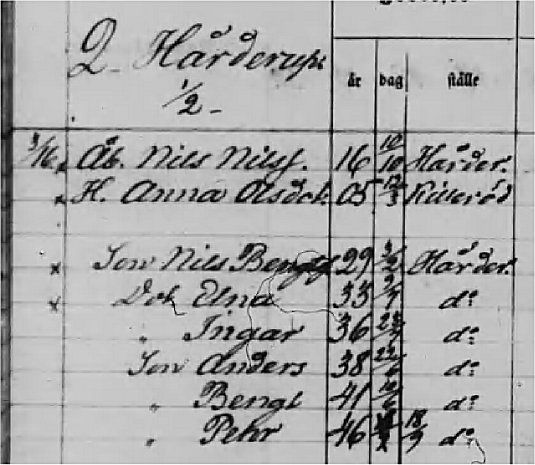 2 Hårderups
1/2
år dag ställe
3/16 Åb. Nils Nilss. 16 10/10 Hårder.
H. Anna Olsdot. 05 12/3 Killeröd
Son Nils Bengts 29 3/2 Hårder.
Dot Elna 33 do
" Ingar 36 do
Son Anders 38 do
" Bengt 41 do
" Pehr 46 18/9 do